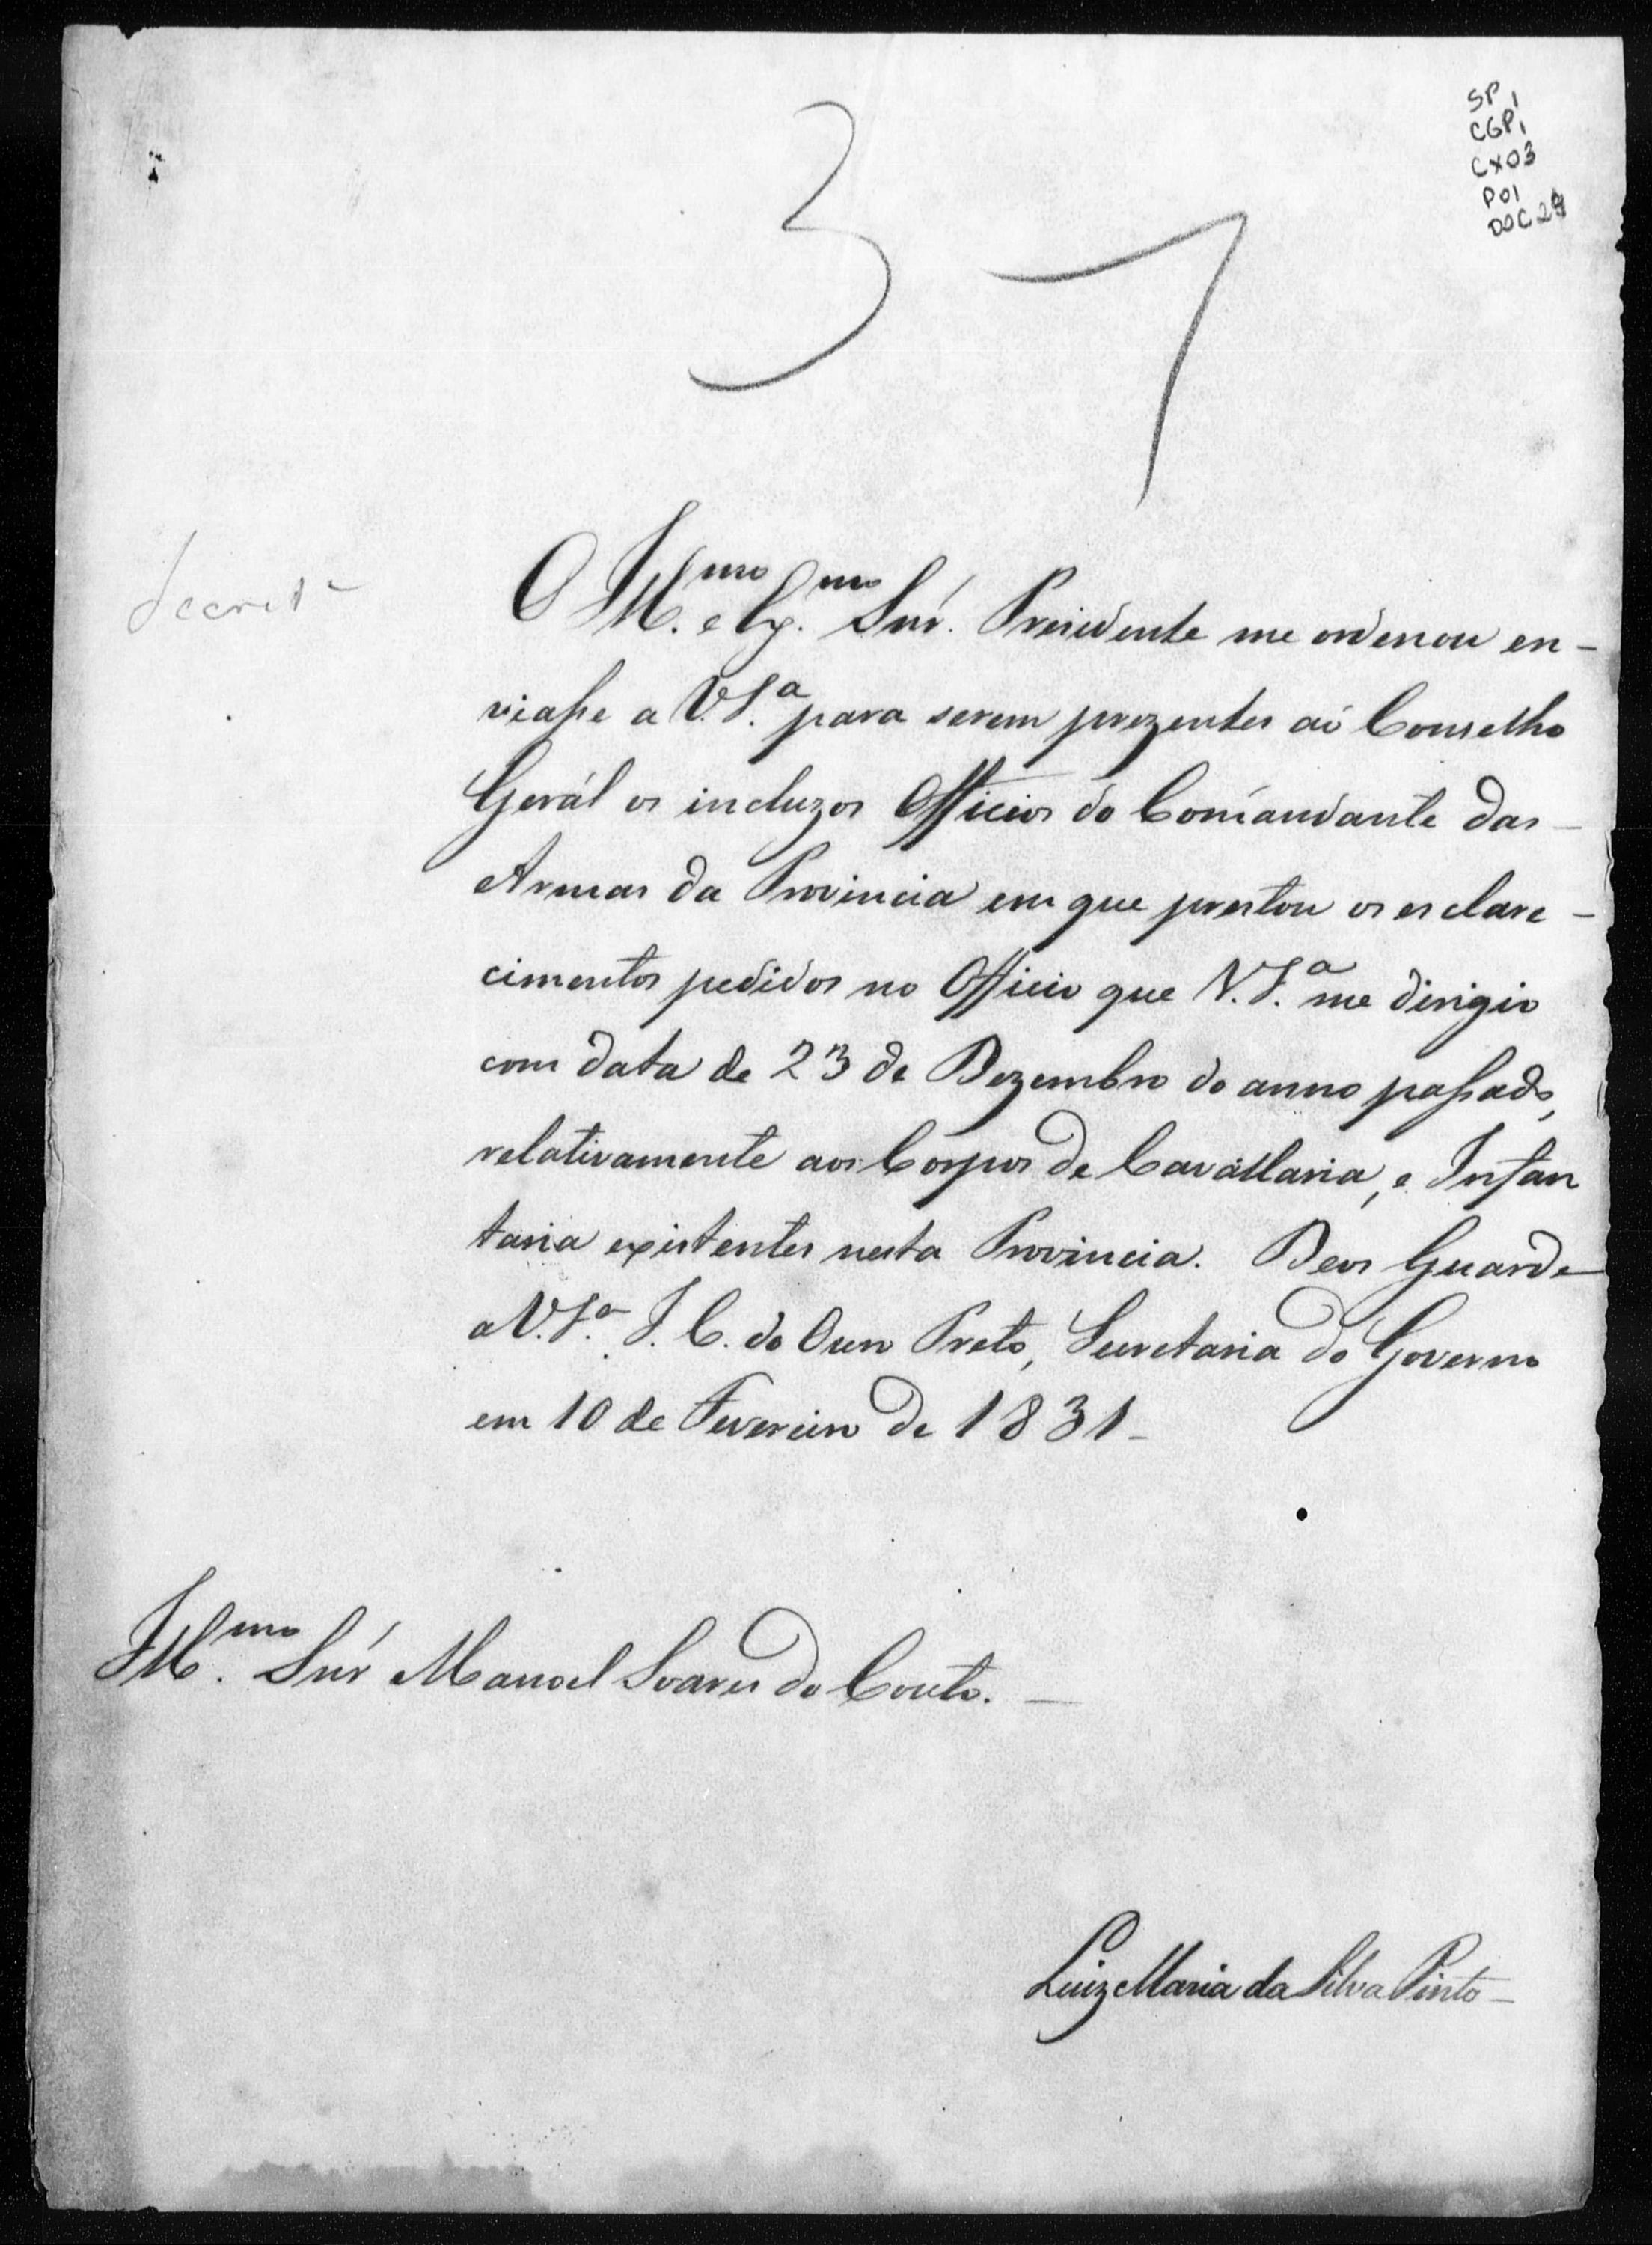 SP1
CGP1
CX03
P01
DOC 29
37
Secret
O Ill.mo e Ex.mo Snr. Prezidente me ordenou en-
viasse a V.S.a para serem prezentes aó Conselho
Gerál os incluzos Officios do Comandante das
Armas da Provincia em que prestou os esclare-
cimentos pedidos no Officio que V.S.a me dirigio
com data de 23 de Dezembro do anno passado,
relativamente aos Corpos de Cavállaria, e Infan
taria existentes nesta Provincia. Deos Guarde
a V.S.a I. C. do Ouro Preto, Secretaria do Governo
em 10 de Fevereiro de 1831_
Ill.mo Snr Manoel Soares do Couto._
Luiz Maria da Silva Pinto_